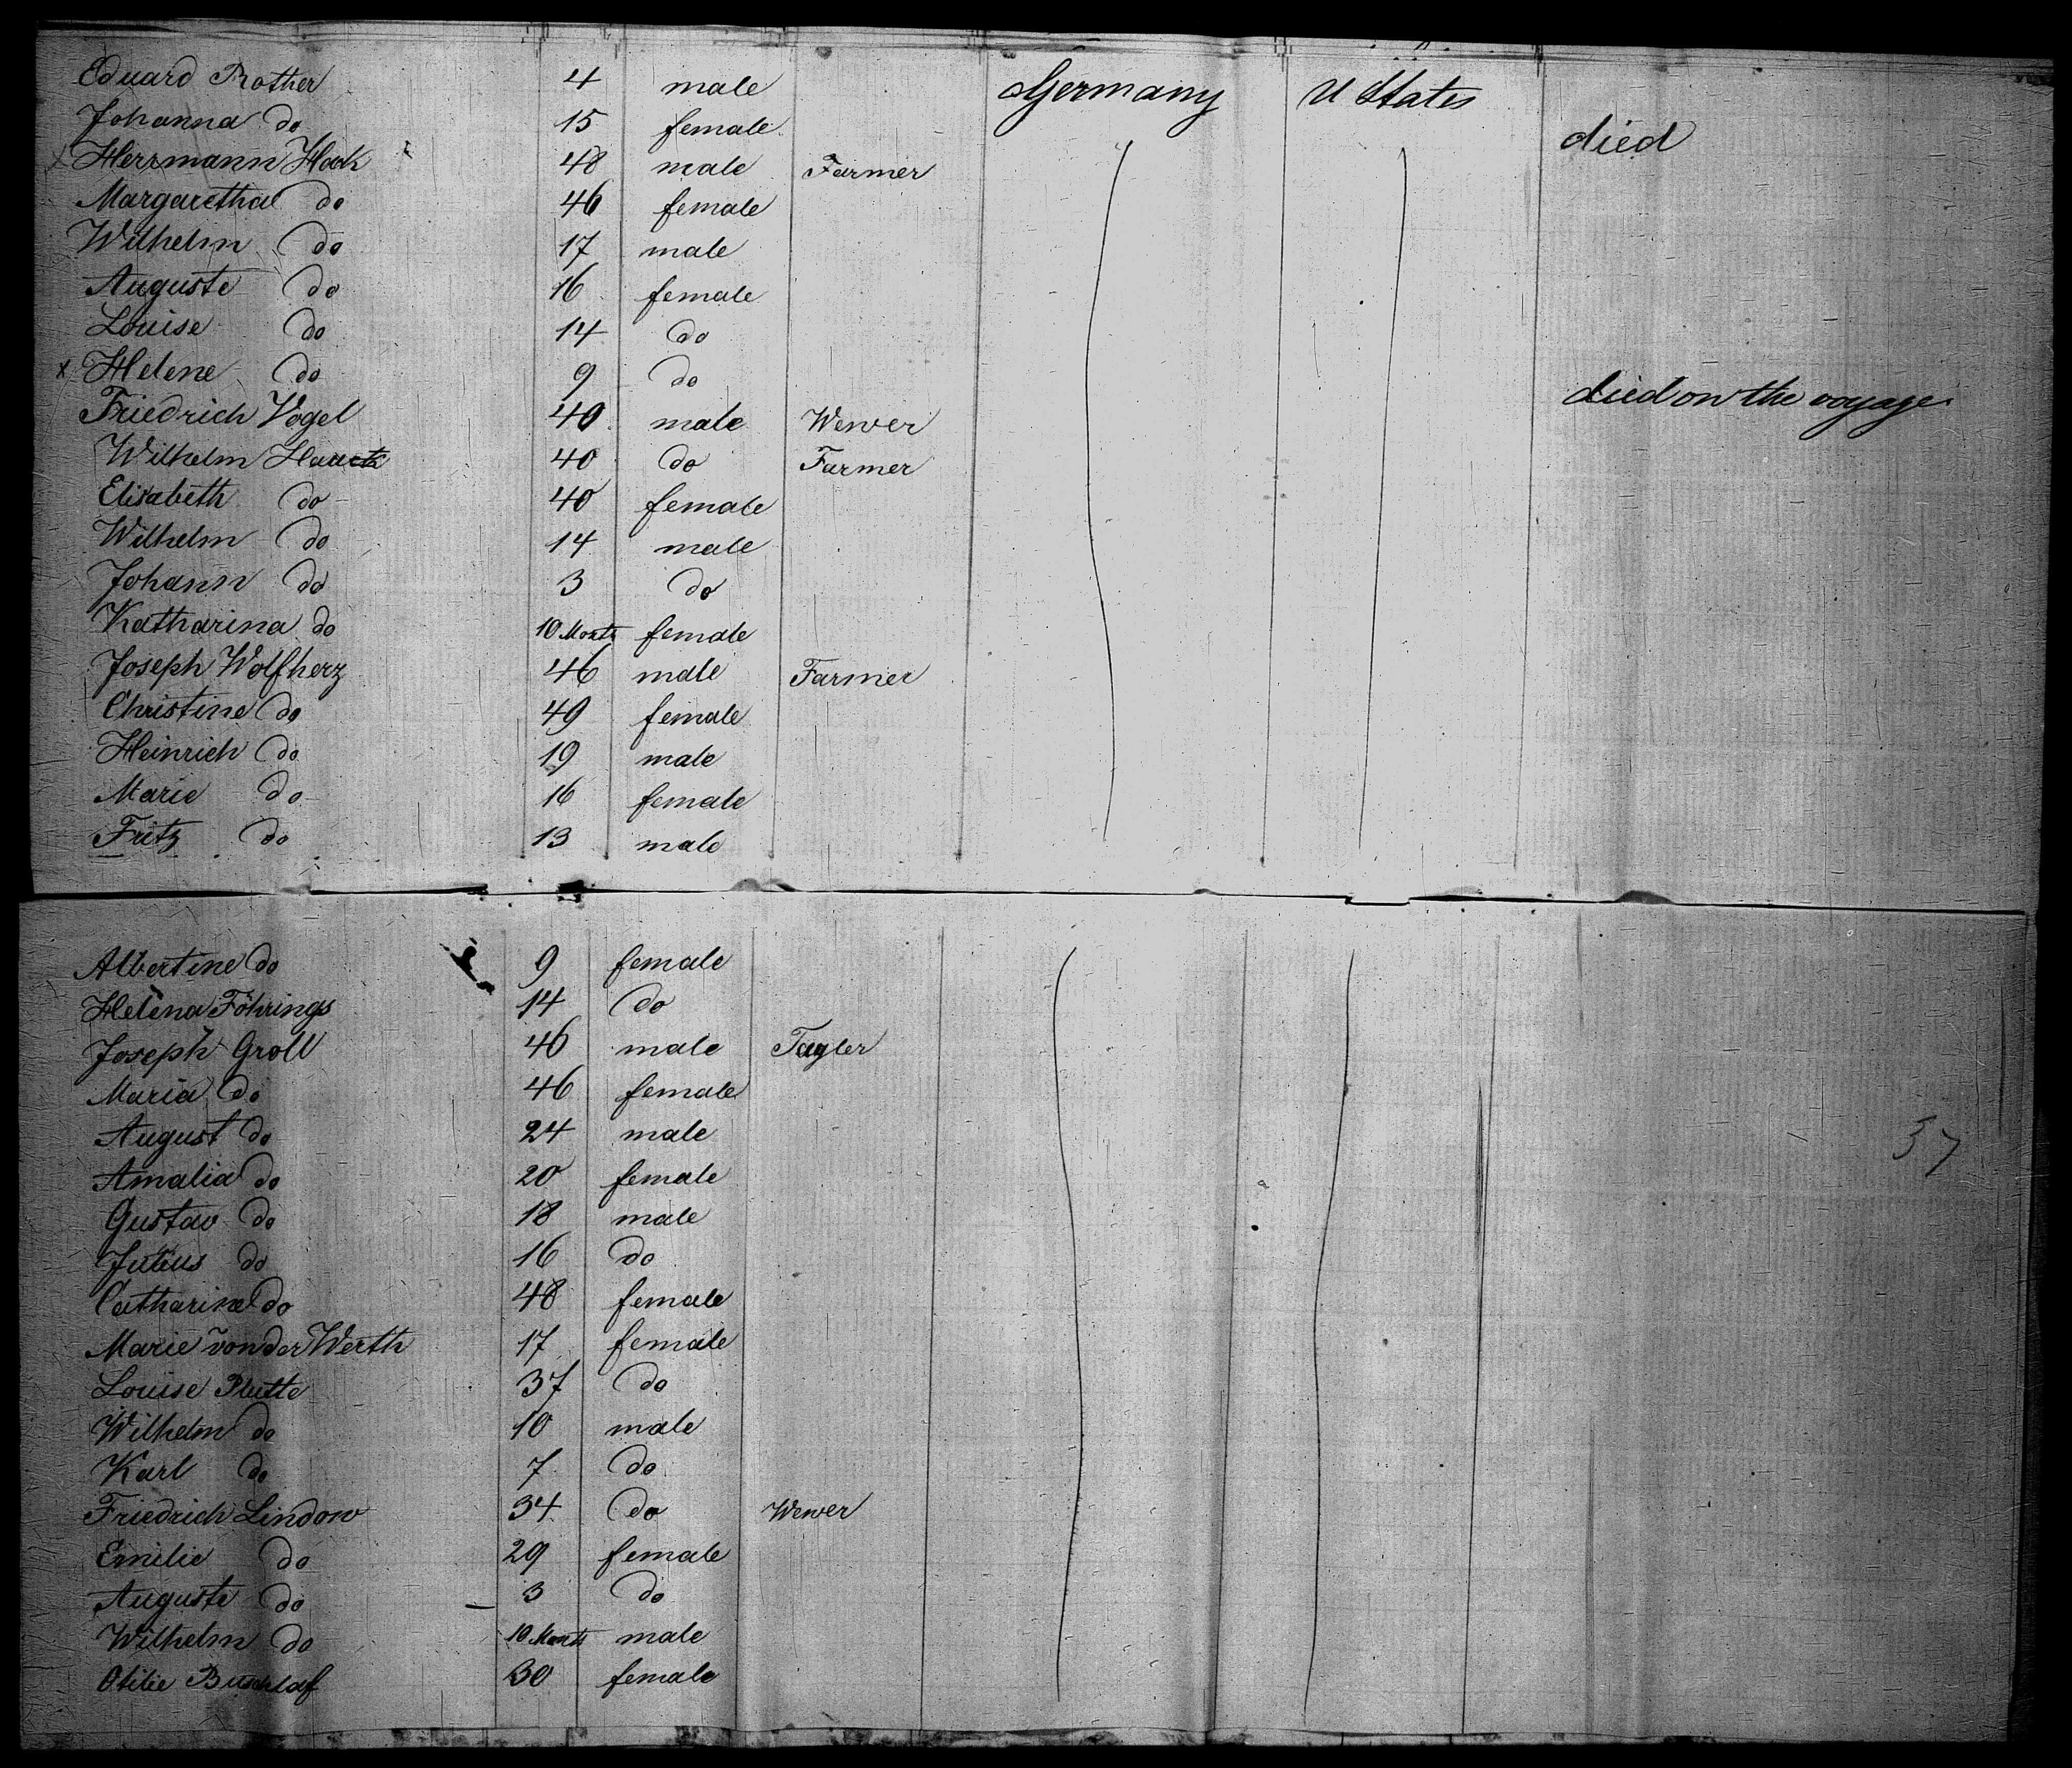 Eduard Rother 4 male Germany U States
Johanna do 15 female died
x Herrmann Hack 48 male Farmer
Margaretha do 46 female
Wilhelm do 17 male
Auguste do 16 female
Louise do 14 do
x Helene do 9 do died on the voyage
Friedrich Vogel 40 male Wewer
Wilhelm 40 do Farmer
Elisabeth do 40 female
Wilhelm do 14 male
Johann do 3 do
Katharina do 10 Monts female
Joseph Wolfherz 46 male Farmer
Christine do 49 female
Heinrich do 19 male
Marie do 16 female
Fritz do 13 male
Albertine do 9 female
Helena Föhrings 14 do
Joseph Groll 46 male Tagler
Maria do 46 female
August do 24 male
Amalia do 20 female
Gustav do 18 male
Julius do 16 do
Catharina do 48 female
Marie von der Werth 17 female
Louise Plutte 37 do
Wilhelm do 10 male
Karl do 7 do
Friedrich Lindow 34 do Wewer
Emilie do 29 female
Auguste do 3 do
Wilhelm do 10 Monts male
Otilie Buschlaf 30 female
37